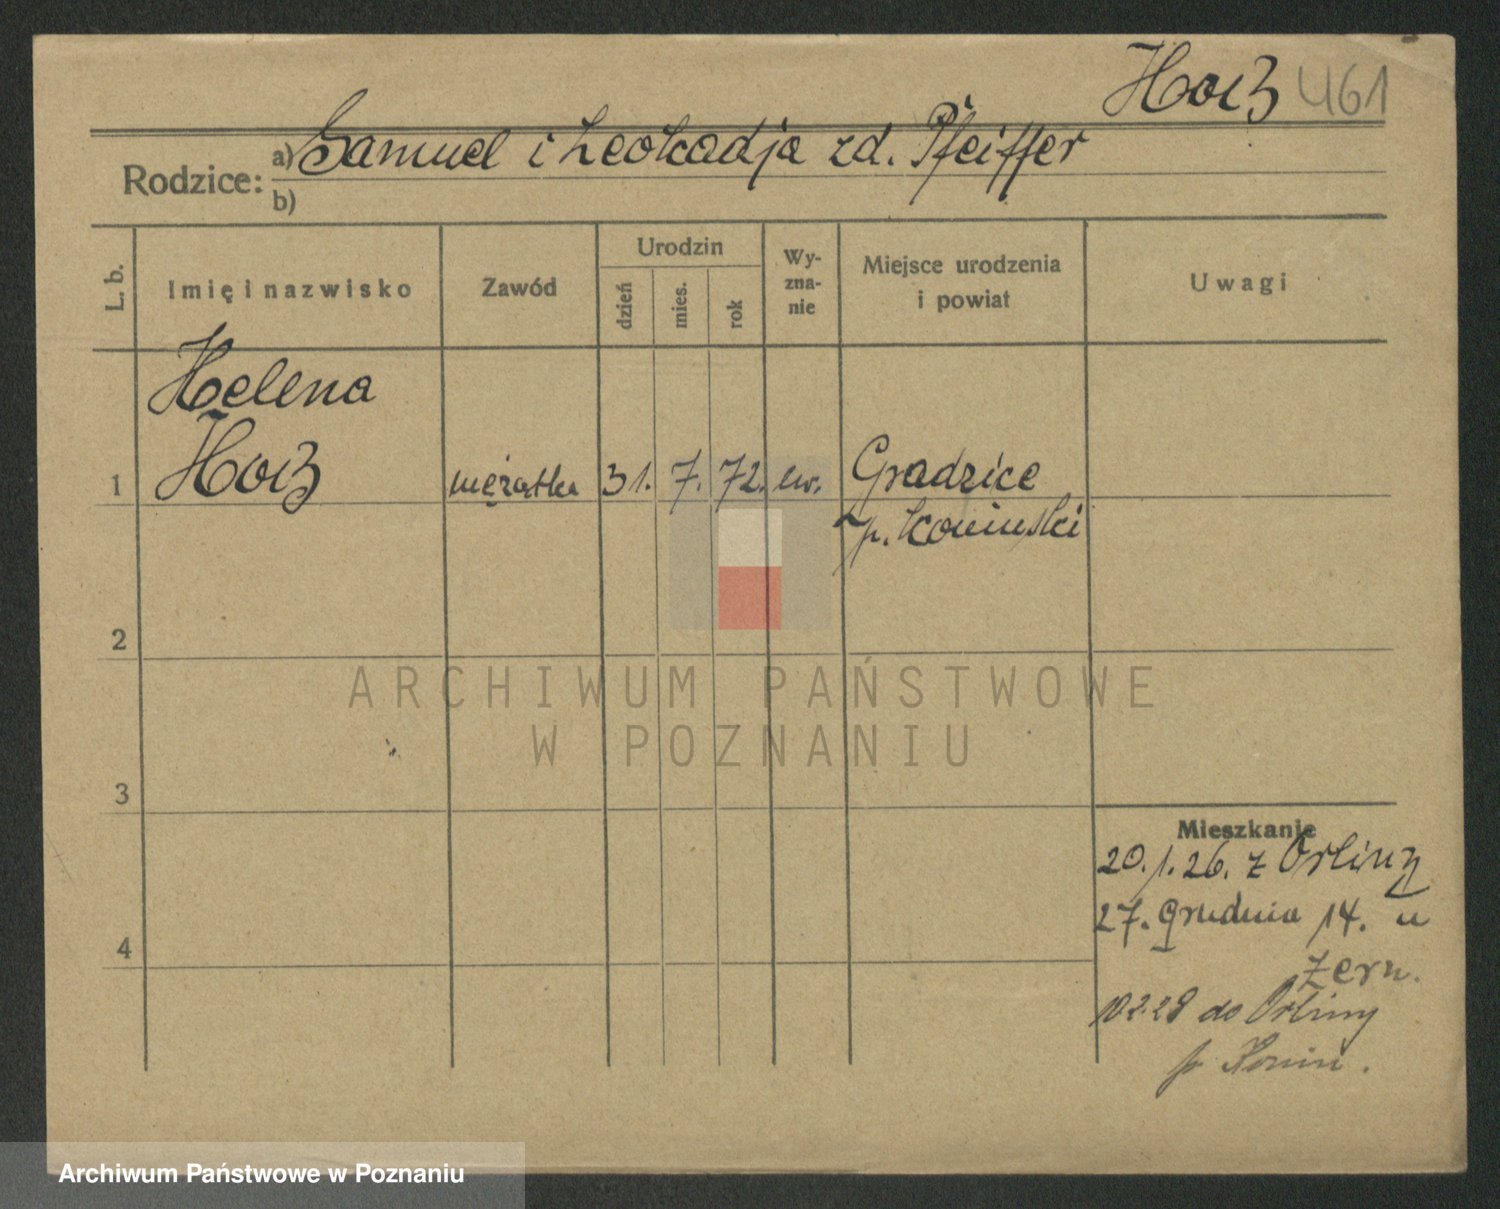 Horz 461
Rodzice:
a) Samuel i Leokadja zd. Pfeiffer
b)
L. b.
Imię i nazwisko
Zawód
Urodzin
dzień
mies.
rok
Wy-
zna-
nie
Miejsce urodzenia
i powiat
Uwagi
Helena
Horz
1 mężatka 31. 7. 72. ew. Gradzice
p. koninski
2
ARCHIWUM PAŃSTWOWE
W POZNANIU
3
Mieszkanie
20.1.26. z Orliny
27. Grudnia 14. u
Zern.
4
10.2.28 do Orliny
p. Konin.
Archiwum Państwowe w Poznaniu